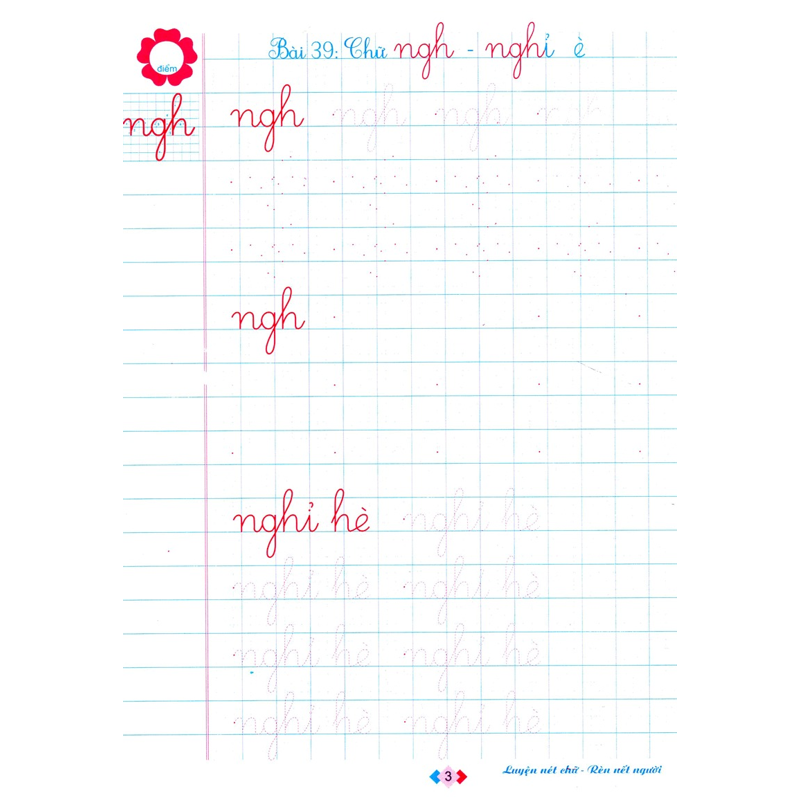 Bài 39: Chữ ngh - nghỉ è
điểm
ngh
ngh ngh ngh ngh
ngh
nghỉ hè nghỉ hè
nghỉ hè nghỉ hè
nghỉ hè nghỉ hè
nghỉ hè nghỉ hè
3
Luyện nét chữ - Rèn nết người